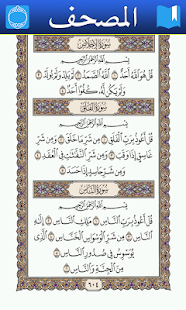 المصحف
سُورَةُ الإِخْلَاصِ
بِسْمِ اللَّهِ الرَّحْمَٰنِ الرَّحِيمِ
قُلْ هُوَ اللَّهُ أَحَدٌ ۝١ اللَّهُ الصَّمَدُ ۝٢ لَمْ يَلِدْ وَلَمْ يُولَدْ ۝٣
وَلَمْ يَكُن لَّهُ كُفُوًا أَحَدٌ ۝٤
سُورَةُ الفَلَقِ
بِسْمِ اللَّهِ الرَّحْمَٰنِ الرَّحِيمِ
قُلْ أَعُوذُ بِرَبِّ الْفَلَقِ ۝١ مِن شَرِّ مَا خَلَقَ ۝٢ وَمِن شَرِّ
غَاسِقٍ إِذَا وَقَبَ ۝٣ وَمِن شَرِّ النَّفَّاثَاتِ فِي الْعُقَدِ ۝٤
وَمِن شَرِّ حَاسِدٍ إِذَا حَسَدَ ۝٥
سُورَةُ النَّاسِ
بِسْمِ اللَّهِ الرَّحْمَٰنِ الرَّحِيمِ
قُلْ أَعُوذُ بِرَبِّ النَّاسِ ۝١ مَلِكِ النَّاسِ ۝٢ إِلَٰهِ
النَّاسِ ۝٣ مِن شَرِّ الْوَسْوَاسِ الْخَنَّاسِ ۝٤ الَّذِي
يُوَسْوِسُ فِي صُدُورِ النَّاسِ ۝٥
مِنَ الْجِنَّةِ وَالنَّاسِ ۝٦
٦٠٤